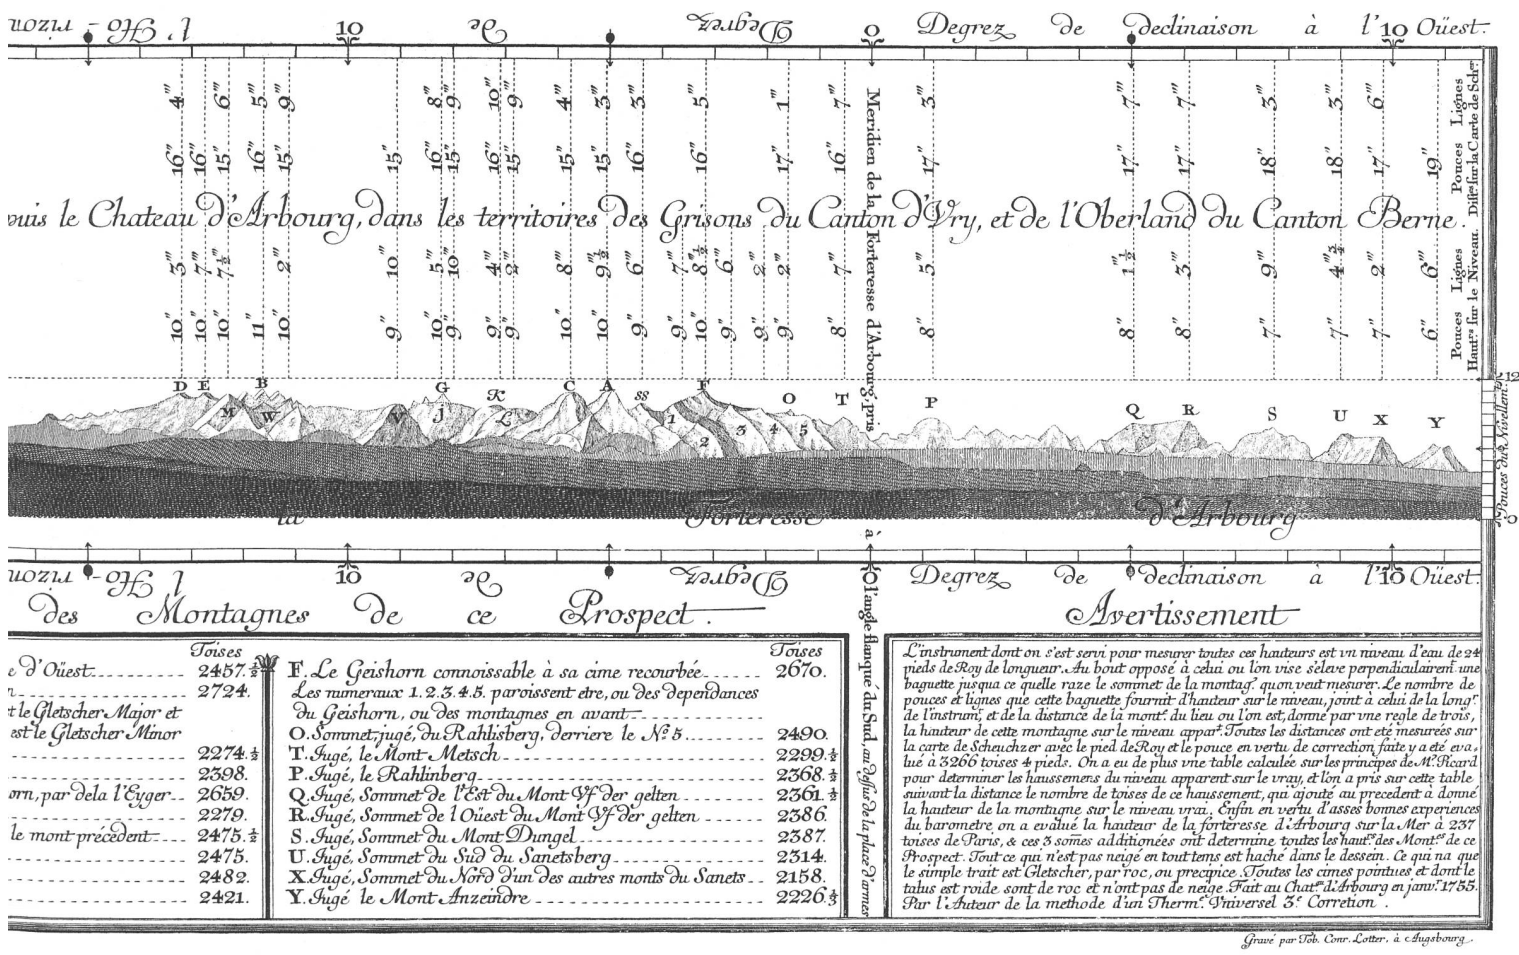 rizon l'Ho- 10 de Degrez 0 Degrez de declinaison à l' 10 Oüest.
4''' 6''' 5''' 9''' 8''' 9''' 10''' 9''' 4''' 3''' 3''' 5''' 1''' 7''' 3''' 7''' 7''' 3''' 3''' 6'''
16'' 16'' 15'' 16'' 15'' 15'' 16'' 15'' 16'' 15'' 15'' 15'' 16'' 16'' 17'' 16'' 17'' 17'' 17'' 18'' 18'' 17'' 19''
Pouces Lignes
Dist.es sur la Carte de Sch.er
Meridien de la Forteresse d'Arbourg, pris
puis le Chateau d'Arbourg, dans les territoires des Grisons du Canton d'Vry, et de l'Oberland du Canton Berne.
3''' 7''' 7½''' 2''' 10''' 5''' 10''' 4''' 2''' 8''' 9½''' 6''' 7''' 8½''' 6''' 2''' 2''' 7''' 5''' 1½''' 3''' 9''' 4¾''' 2''' 6'''
10'' 10'' 10'' 11'' 10'' 9'' 10'' 9'' 9'' 9'' 10'' 10'' 9'' 9'' 10'' 9'' 9'' 9'' 8'' 8'' 8'' 8'' 7'' 7'' 7'' 6''
Pouces Lignes
Haut.rs sur le Niveau.
12
D E B G K C A ss F O T P Q R S U X Y
M W V J L 1 2 3 4 5
Pouces du Nivellem.t
0
la Forteresse d'Arbourg
à
rizon l'Ho- 10 de Degrez 0 Degrez de declinaison à l' 10 Oüest.
l'angle flanqué du Sud, au dessus de la place d'armes
des Montagnes de ce Prospect.
Toises
e d'Oüest 2457.½
n 2724.
t le Gletscher Major et
est le Gletscher Minor
2274.½
2398.
orn, par dela l'Eyger 2659.
2279.
le mont précedent 2475.½
2475.
2482.
2421.
Toises
F. Le Geishorn connoissable à sa cime recourbée 2670.
Les numeraux 1. 2. 3. 4. 5. paroissent etre, ou des dependances
du Geishorn, ou des montagnes en avant
O. Sommet, jugé, du Rahlisberg, derriere le N.º 5 2490.
T. Jugé, le Mont Metsch 2299.½
P. Jugé, le Rahlinberg 2368.½
Q. Jugé, Sommet de l'Est du Mont Vf der gelten 2361.½
R. Jugé, Sommet de l Oüest du Mont Vf der gelten 2386.
S. Jugé, Sommet du Mont Dungel 2387.
U. Jugé, Sommet du Sud du Sanetsberg 2314.
X. Jugé, Sommet du Nord d'un des autres monts du Sanets 2158.
Y. Jugé le Mont Anzeindre 2226.⅓
Avertissement
L'instrument dont on s'est servi pour mesurer toutes ces hauteurs est un niveau d'eau de 24
pieds de Roy de longueur. Au bout opposé à celui ou l'on vise s'eleve perpendiculairem.t une
baguette jusqua ce quelle raze le sommet de la montag.e quon veut mesurer. Le nombre de
pouces et lignes que cette baguette fournit d'hauteur sur le niveau, joint à celui de la long.r
de l'instrum.t, et de la distance de la mont.e du lieu ou l'on est, donne par vne regle de trois,
la hauteur de cette montagne sur le niveau appar.t. Toutes les distances ont eté mesurées sur
la carte de Scheuchzer avec le pied de Roy et le pouce en vertu de correction faite y a eté eva-
lué à 3266 toises 4 pieds. On a eu de plus vne table calculée sur les principes de M.r Picard
pour determiner les haussemens du niveau apparent sur le vray, et l'on a pris sur cette table
suivant la distance le nombre de toises de ce haussement, qui ajouté au precedent à donné
la hauteur de la montagne sur le niveau vrai. Enfin en vertu d'asses bonnes experiences
du barometre on a evalué la hauteur de la forteresse d'Arbourg sur la Mer à 237
toises de Paris, & ces 3 somes additionées ont determiné toutes les haut.rs des Mont.es de ce
Prospect. Tout ce qui n'est pas neigé en tout tems est haché dans le dessein. Ce qui na que
le simple trait est Gletscher, par roc, ou precipice. Toutes les cimes pointues et dont le
talus est roide sont de roc et n'ont pas de neige. Fait au Chat.au d'Arbourg en janv.r 1755.
Par l'Auteur de la methode d'un Therm.e Vniversel 3.e Corretion.
Gravé par Tob. Conr. Lotter, à Augsbourg.